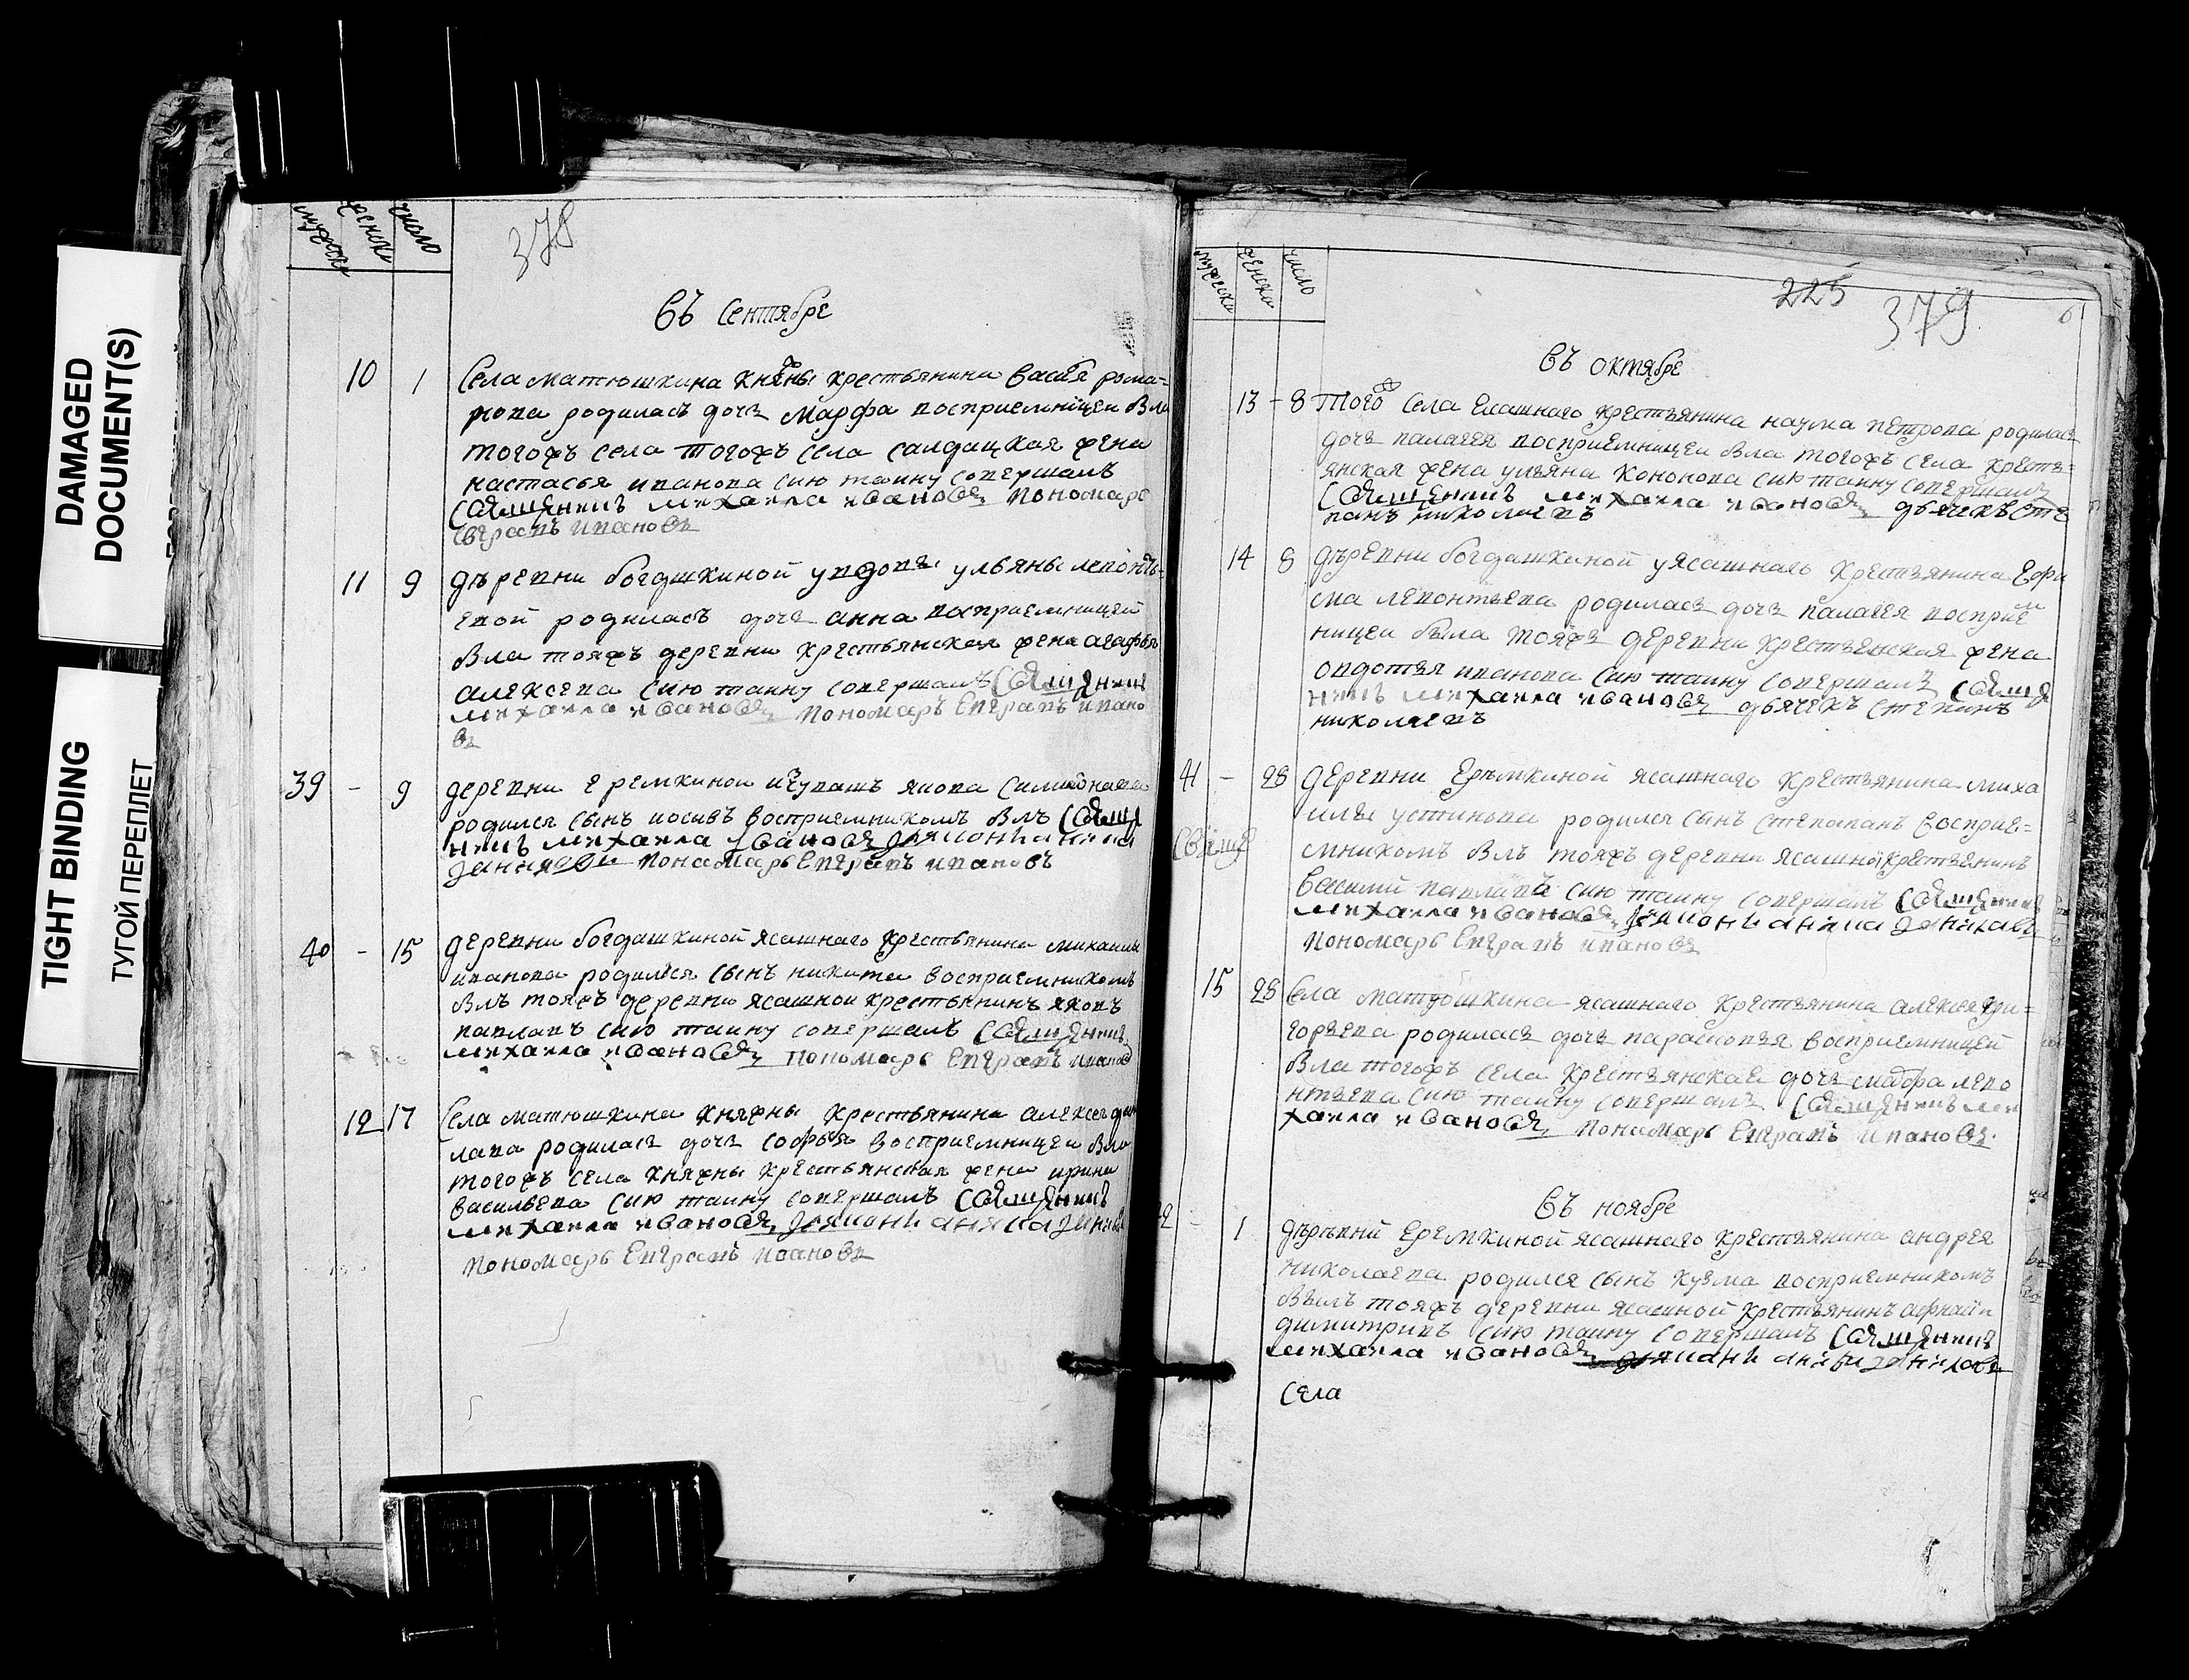 DAMAGED
DOCUMENT(S)
TIGHT BINDING
ТУГОЙ ПЕРЕПЛЕТ
мужеска
женска
число
378
въ сентябре
10 1 села матюшкина княжны крестьянина васил рома=
нова родилась дочь марфа восприемницеи бла
тогожъ села тогожъ села салдацкая жена
настасья иванова сию таину совершалъ
священникъ михаила ивановъ пономарь
евграпъ ивановъ
11 9 деревни богдашкиной у вдовы ульяны левонть=
евой родилась дочь анна восприемницей
бла тояжъ деревни крестьянская жена агафья
алексева сию таину совершалъ священникъ
михаила ивановъ пономаръ евграпъ ивано
въ
39 - 9 деревни еремкинои
родился сынъ иосивъ восприемникомъ блъ
михаила ивановъ
пономарь евграпъ ивановъ
40 - 15 деревни богдашкиной ясашнаго крестьянина михаилы
иванова родился сынъ никита восприемникомъ
блъ тояжъ деревни ясашнои крестьянинъ яковъ
павлавъ сию таину совершалъ священникъ
михаила ивановъ пономарь евграпъ ивановъ
12 17 села матюшкина княжны крестьянина алексея дани
лава родилась дочь софья восприемницеи бла
тогожъ села княжны крестьянская жена ирина
васильева сию таину совершалъ священникъ
михаила ивановъ
пономарь евграпъ ивановъ
мужеска
женска
число
225 379
въ октябре
13 - 8 тогожъ села ясашнаго крестьянина наума петрова родилась
дочь палагея восприемницеи бла тогожъ села кресть=
янская жена ульяна кононова сию таину совершалъ
священникъ михаила ивановъ дьячекъ сте
панъ николаевъ
14 8 деревни богдашкиной у ясашнаго крестьянина ефи
ма левонтьева родилась дочь палагея восприем
ницеи была тояжъ деревни крестьянская жена
овдотья иванова сию таину совершалъ свяще
никъ михаила ивановъ дьячекъ степанъ
николаевъ
41 - 28 деревни еремкиной ясашнаго крестьянина миха
илы устинова родился сынъ степапан восприе=
мникомъ блъ тояжъ деревни ясашной крестьянинъ
василий павлавъ сию таину совершалъ священникъ
михаила ивановъ
пономарь евграпъ ивановъ
15 28 села матюшкина ясашнаго крестьянина алексея гри=
горьева родилась дочь парасковья восприемницей
бла тогожъ села крестьянская дочь марфа лево
нтьева сию таину совершалъ священникъ ми
хаила ивановъ пономарь евграпъ ивановъ
въ ноябре
42 - 1 деревни еремкиной ясашнаго крестьянина андрея
николаева родился сынъ кузма восприемникомъ
былъ тояжъ деревни ясашной крестьянинъ
димитривъ сию таину совершалъ священникъ
михаила ивановъ
села